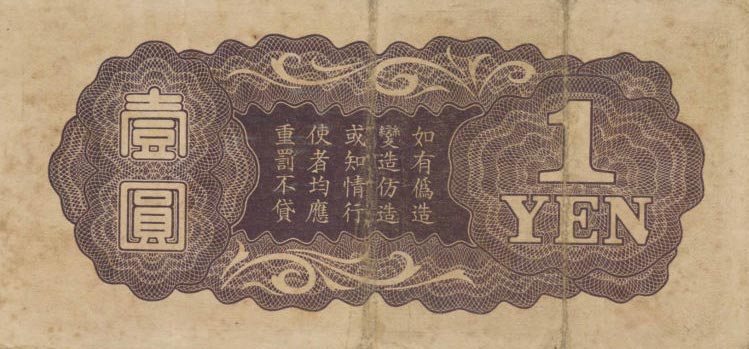 壹圓
如有僞造
變造仿造
或知情行
使者均應
重罰不貸
1
YEN